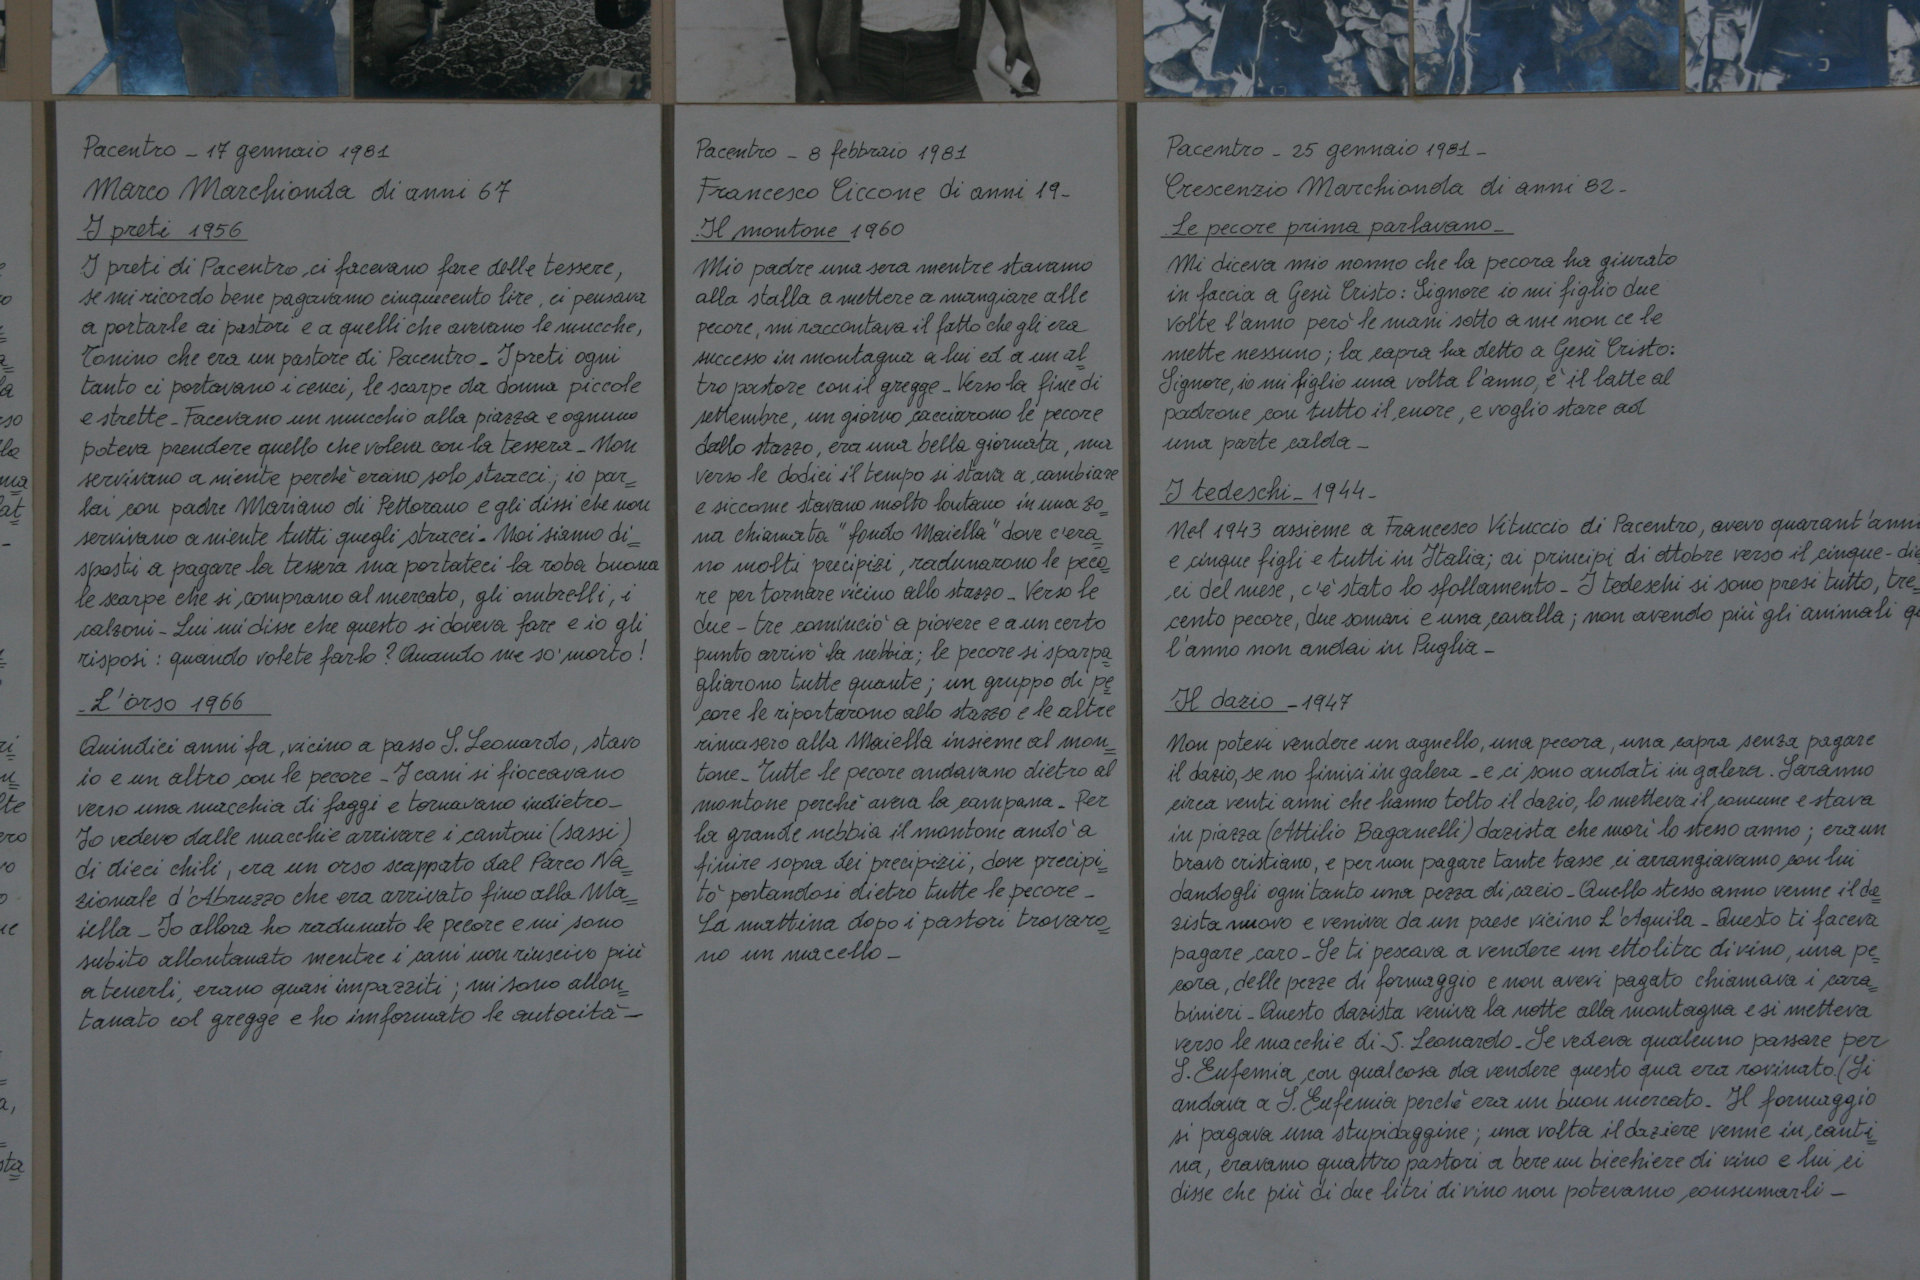 Pacentro - 17 gennaio 1981
Marco Marchionda di anni 67
I preti 1956
I preti di Pacentro ci facevano fare delle tessere,
se mi ricordo bene pagavamo cinquecento lire, ci pensava
a portarle ai pastori e a quelli che avevano le mucche,
Tonino che era un pastore di Pacentro - I preti ogni
tanto ci portavano i cenci, le scarpe da donna piccole
e strette - Facevano un mucchio alla piazza e ognuno
poteva prendere quello che voleva con la tessera - Non
servivano a niente perchè erano solo stracci; io par=
lai con padre Mariano di Pettorano e gli dissi che non
servivano a niente tutti quegli stracci - Noi siamo di=
sposti a pagare la tessera ma portateci la roba buona
le scarpe che si comprano al mercato, gli ombrelli, i
calzoni - Lui mi disse che questo si doveva fare e io gli
risposi: quando volete farlo? Quando me so' morto!
L'orso 1966
Quindici anni fa, vicino a passo S. Leonardo, stavo
io e un altro con le pecore - I cani si fioccavano
verso una macchia di faggi e tornavano indietro -
Io vedevo dalle macchie arrivare i cantoni (sassi)
di dieci chili, era un orso scappato dal Parco Na=
zionale d'Abruzzo che era arrivato fino alla Ma=
iella - Io allora ho radunato le pecore e mi sono
subito allontanato mentre i cani non riuscivo più
a tenerli, erano quasi impazziti; mi sono allon=
tanato col gregge e ho imformato le autorità -
Pacentro - 8 febbraio 1981
Francesco Ciccone di anni 19 -
Il montone 1960
Mio padre una sera mentre stavamo
alla stalla a mettere a mangiare alle
pecore, mi raccontava il fatto che gli era
successo in montagna a lui ed a un al=
tro pastore con il gregge - Verso la fine di
settembre, un giorno cacciarono le pecore
dallo stazzo, era una bella giornata, ma
verso le dodici il tempo si stava a cambiare
e siccome stavano molto lontano in una zo=
na chiamata "fondo Maiella" dove c'era=
no molti precipizi, radunarono le peco=
re per tornare vicino allo stazzo - Verso le
due - tre cominciò a piovere e a un certo
punto arrivò la nebbia; le pecore si sparpa=
gliarono tutte quante; un gruppo di pe=
core le riportarono allo stazzo e le altre
rimasero alla Maiella insieme al mon=
tone - Tutte le pecore andavano dietro al
montone perchè aveva la campana - Per
la grande nebbia il montone andò a
finire sopra dei precipizii, dove precipi=
tò portandosi dietro tutte le pecore -
La mattina dopo i pastori trovaro=
no un macello -
Pacentro - 25 gennaio 1981 -
Crescenzio Marchionda di anni 82 -
Le pecore prima parlavano -
Mi diceva mio nonno che la pecora ha giurato
in faccia a Gesù Cristo: Signore io mi figlio due
volte l'anno però le mani sotto a me non ce le
mette nessuno; la capra ha detto a Gesù Cristo:
Signore, io mi figlio una volta l'anno, è il latte al
padrone con tutto il cuore, e voglio stare ad
una parte calda -
I tedeschi - 1944 -
Nel 1943 assieme a Francesco Vituccio di Pacentro, avevo quarant'anni
e cinque figli e tutti in Italia; ai principi di ottobre verso il cinque - die
ci del mese, c'è stato lo sfollamento - I tedeschi si sono presi tutto, tre=
cento pecore, due somari e una cavalla; non avendo più gli animali
l'anno non andai in Puglia -
Il dazio - 1947
Non potevi vendere un agnello, una pecora, una capra senza pagare
il dazio, se no finivi in galera - e ci sono andati in galera. Saranno
circa venti anni che hanno tolto il dazio, lo metteva il comune e stava
in piazza (Attilio Baganelli) dazista che morì lo stesso anno; era un
bravo cristiano, e per non pagare tante tasse ci arrangiavamo con lui
dandogli ogni tanto una pezza di cacio - Quello stesso anno venne il da=
zista nuovo e veniva da un paese vicino L'Aquila - Questo ti faceva
pagare caro - Se ti pescava a vendere un ettolitro di vino, una pe=
cora, delle pezze di formaggio e non avevi pagato chiamava i cara=
binieri - Questo dazista veniva la notte alla montagna e si metteva
verso le macchie di S. Leonardo - Se vedeva qualcuno passare per
S. Eufemia con qualcosa da vendere questo qua era rovinato (Si
andava a S. Eufemia perchè era un buon mercato - Il formaggio
si pagava una stupidaggine; una volta il daziere venne in canti=
na, eravamo quattro pastori a bere un bicchiere di vino e lui ci
disse che più di due litri di vino non potevamo consumarli -